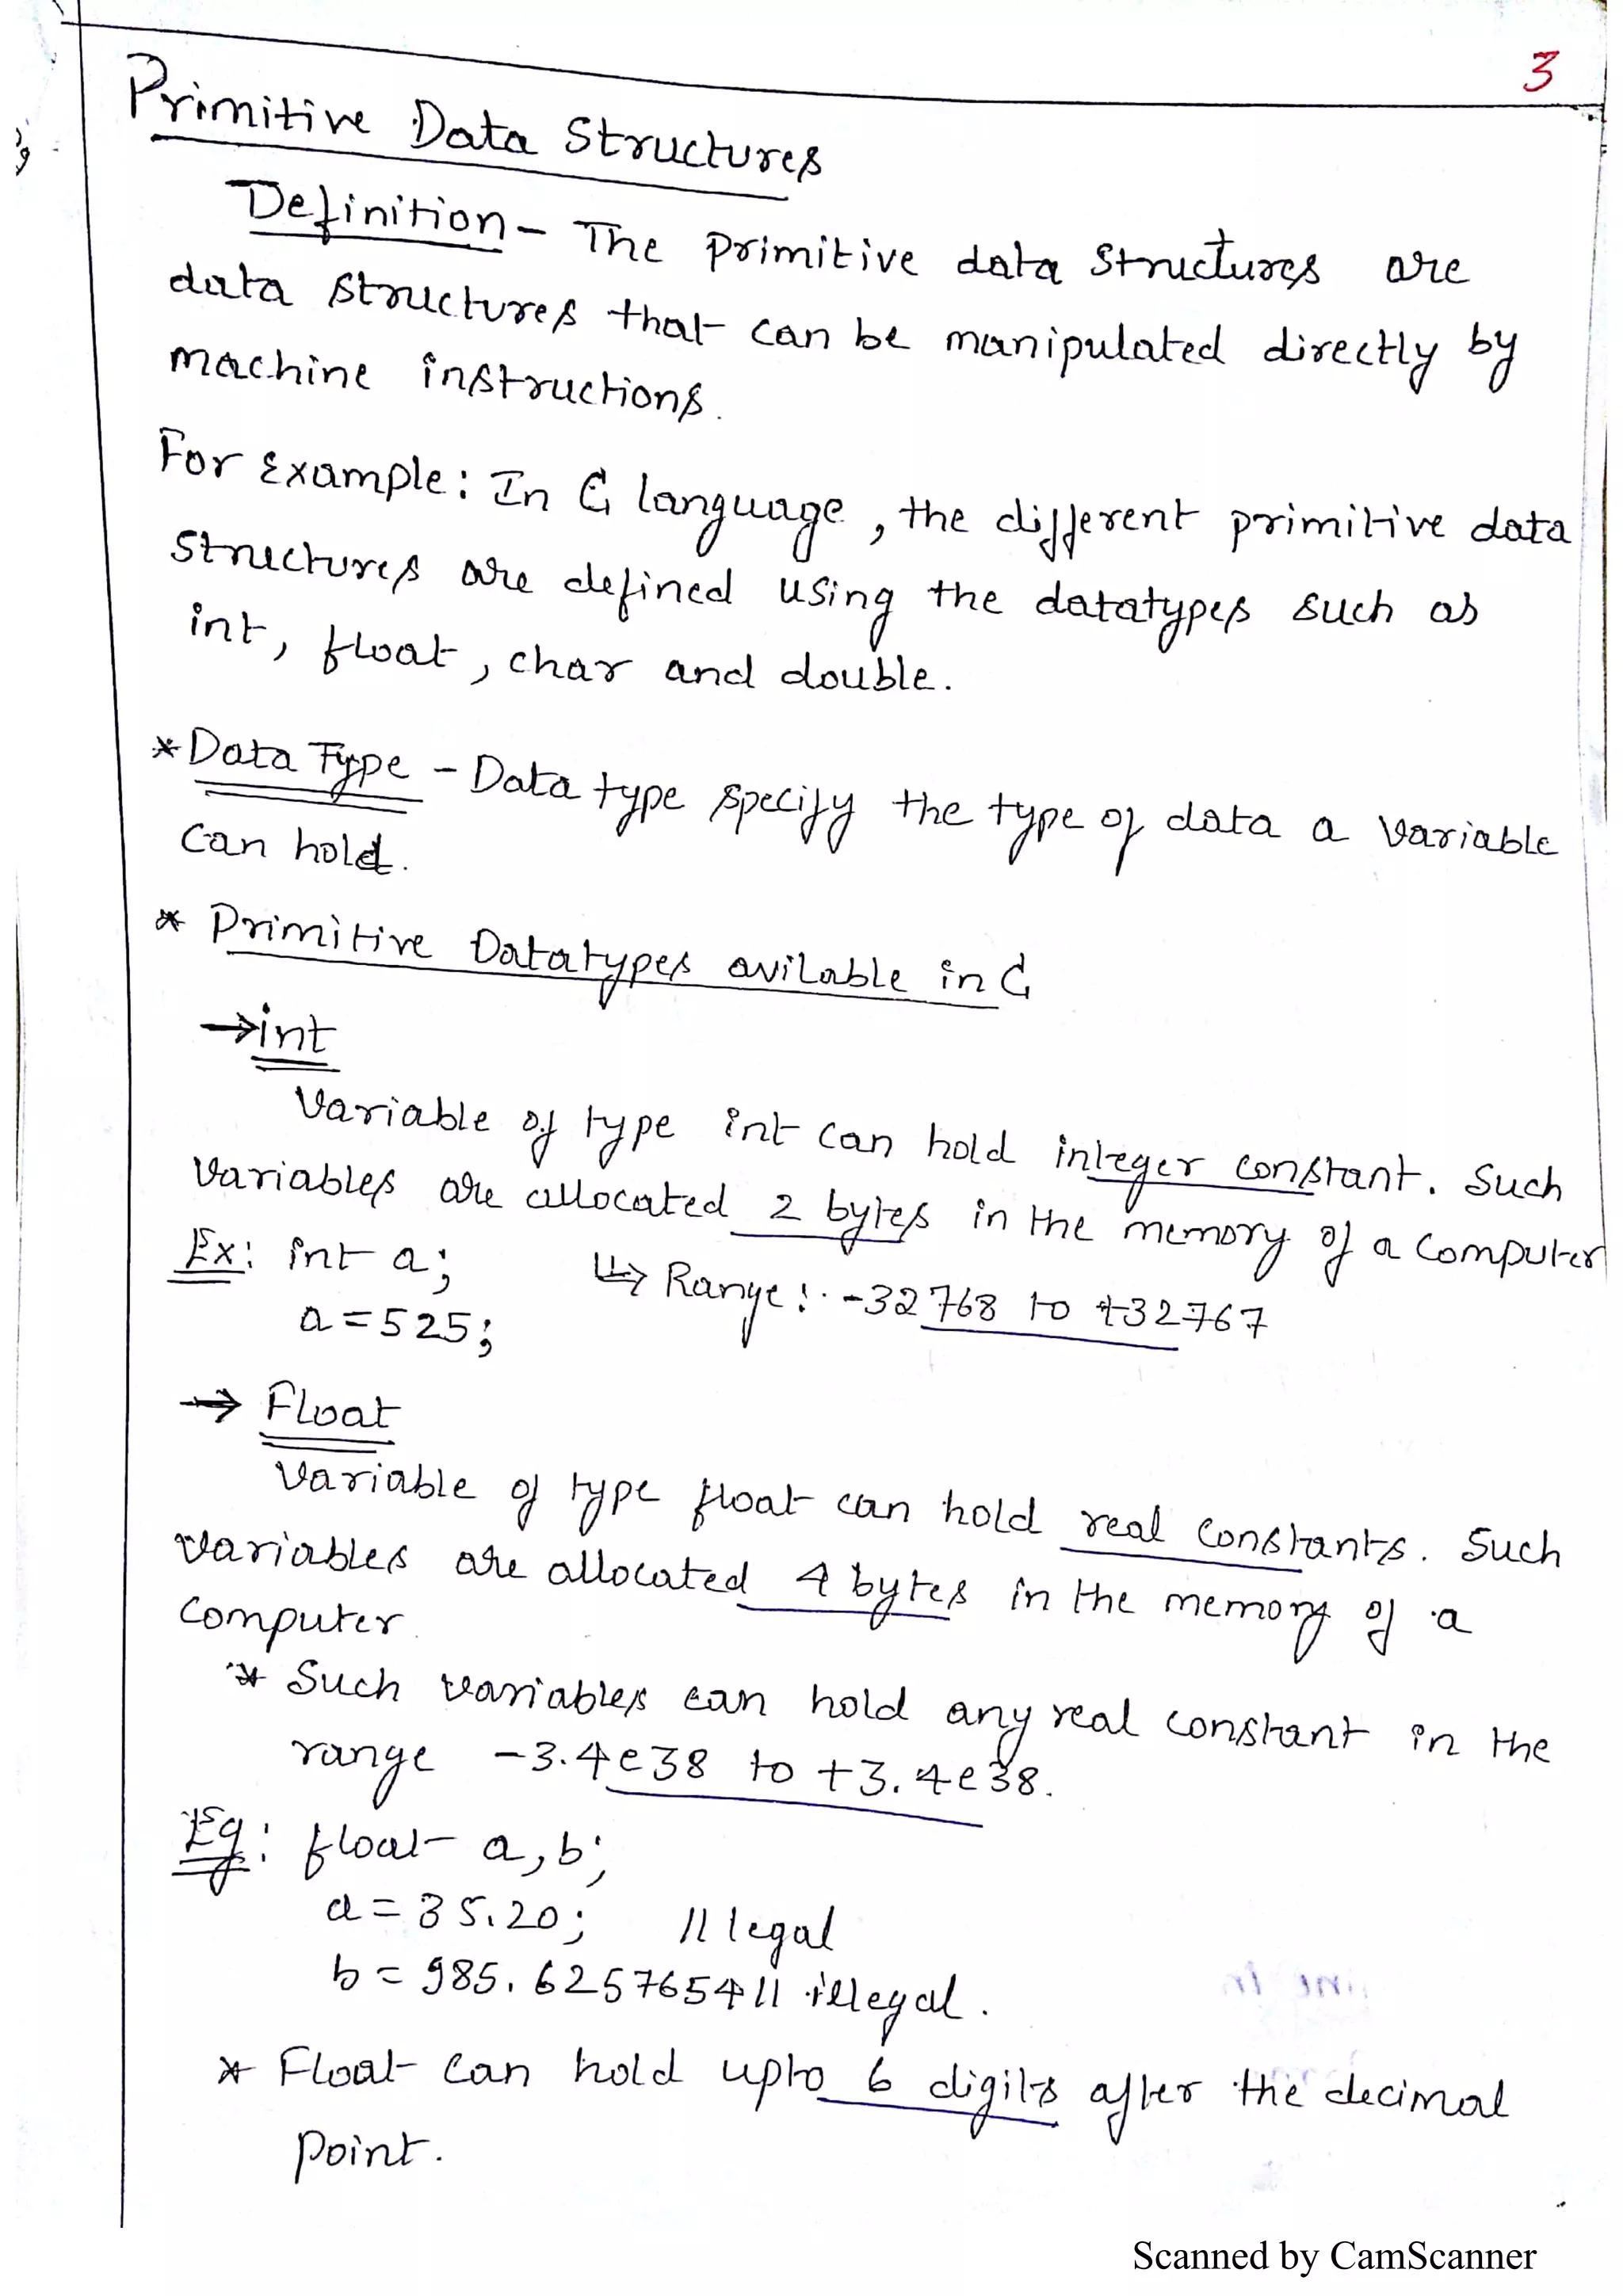 3
Primitive Data Structures
Definition - The primitive data structures are
data structures that can be manipulated directly by
machine instructions.
For Example: In C language, the different primitive data
structures are defined using the datatypes such as
int, float, char and double.
* Data Type - Data type specify the type of data a variable
can hold.
* Primitive Datatypes avilable in C
→ int
Variable of type int can hold integer constant. Such
variables are allocated 2 bytes in the memory of a computer
Ex: int a; ↳ Range: -32768 to +32767
a = 525;
→ Float
Variable of type float can hold real constants. Such
variables are allocated 4 bytes in the memory of a
computer.
* Such variables can hold any real constant in the
range -3.4e38 to +3.4e38.
Eg: float a, b;
a = 35.20; // legal
b = 985.6257654 // illegal.
* Float can hold upto 6 digits after the decimal
point.
Scanned by CamScanner